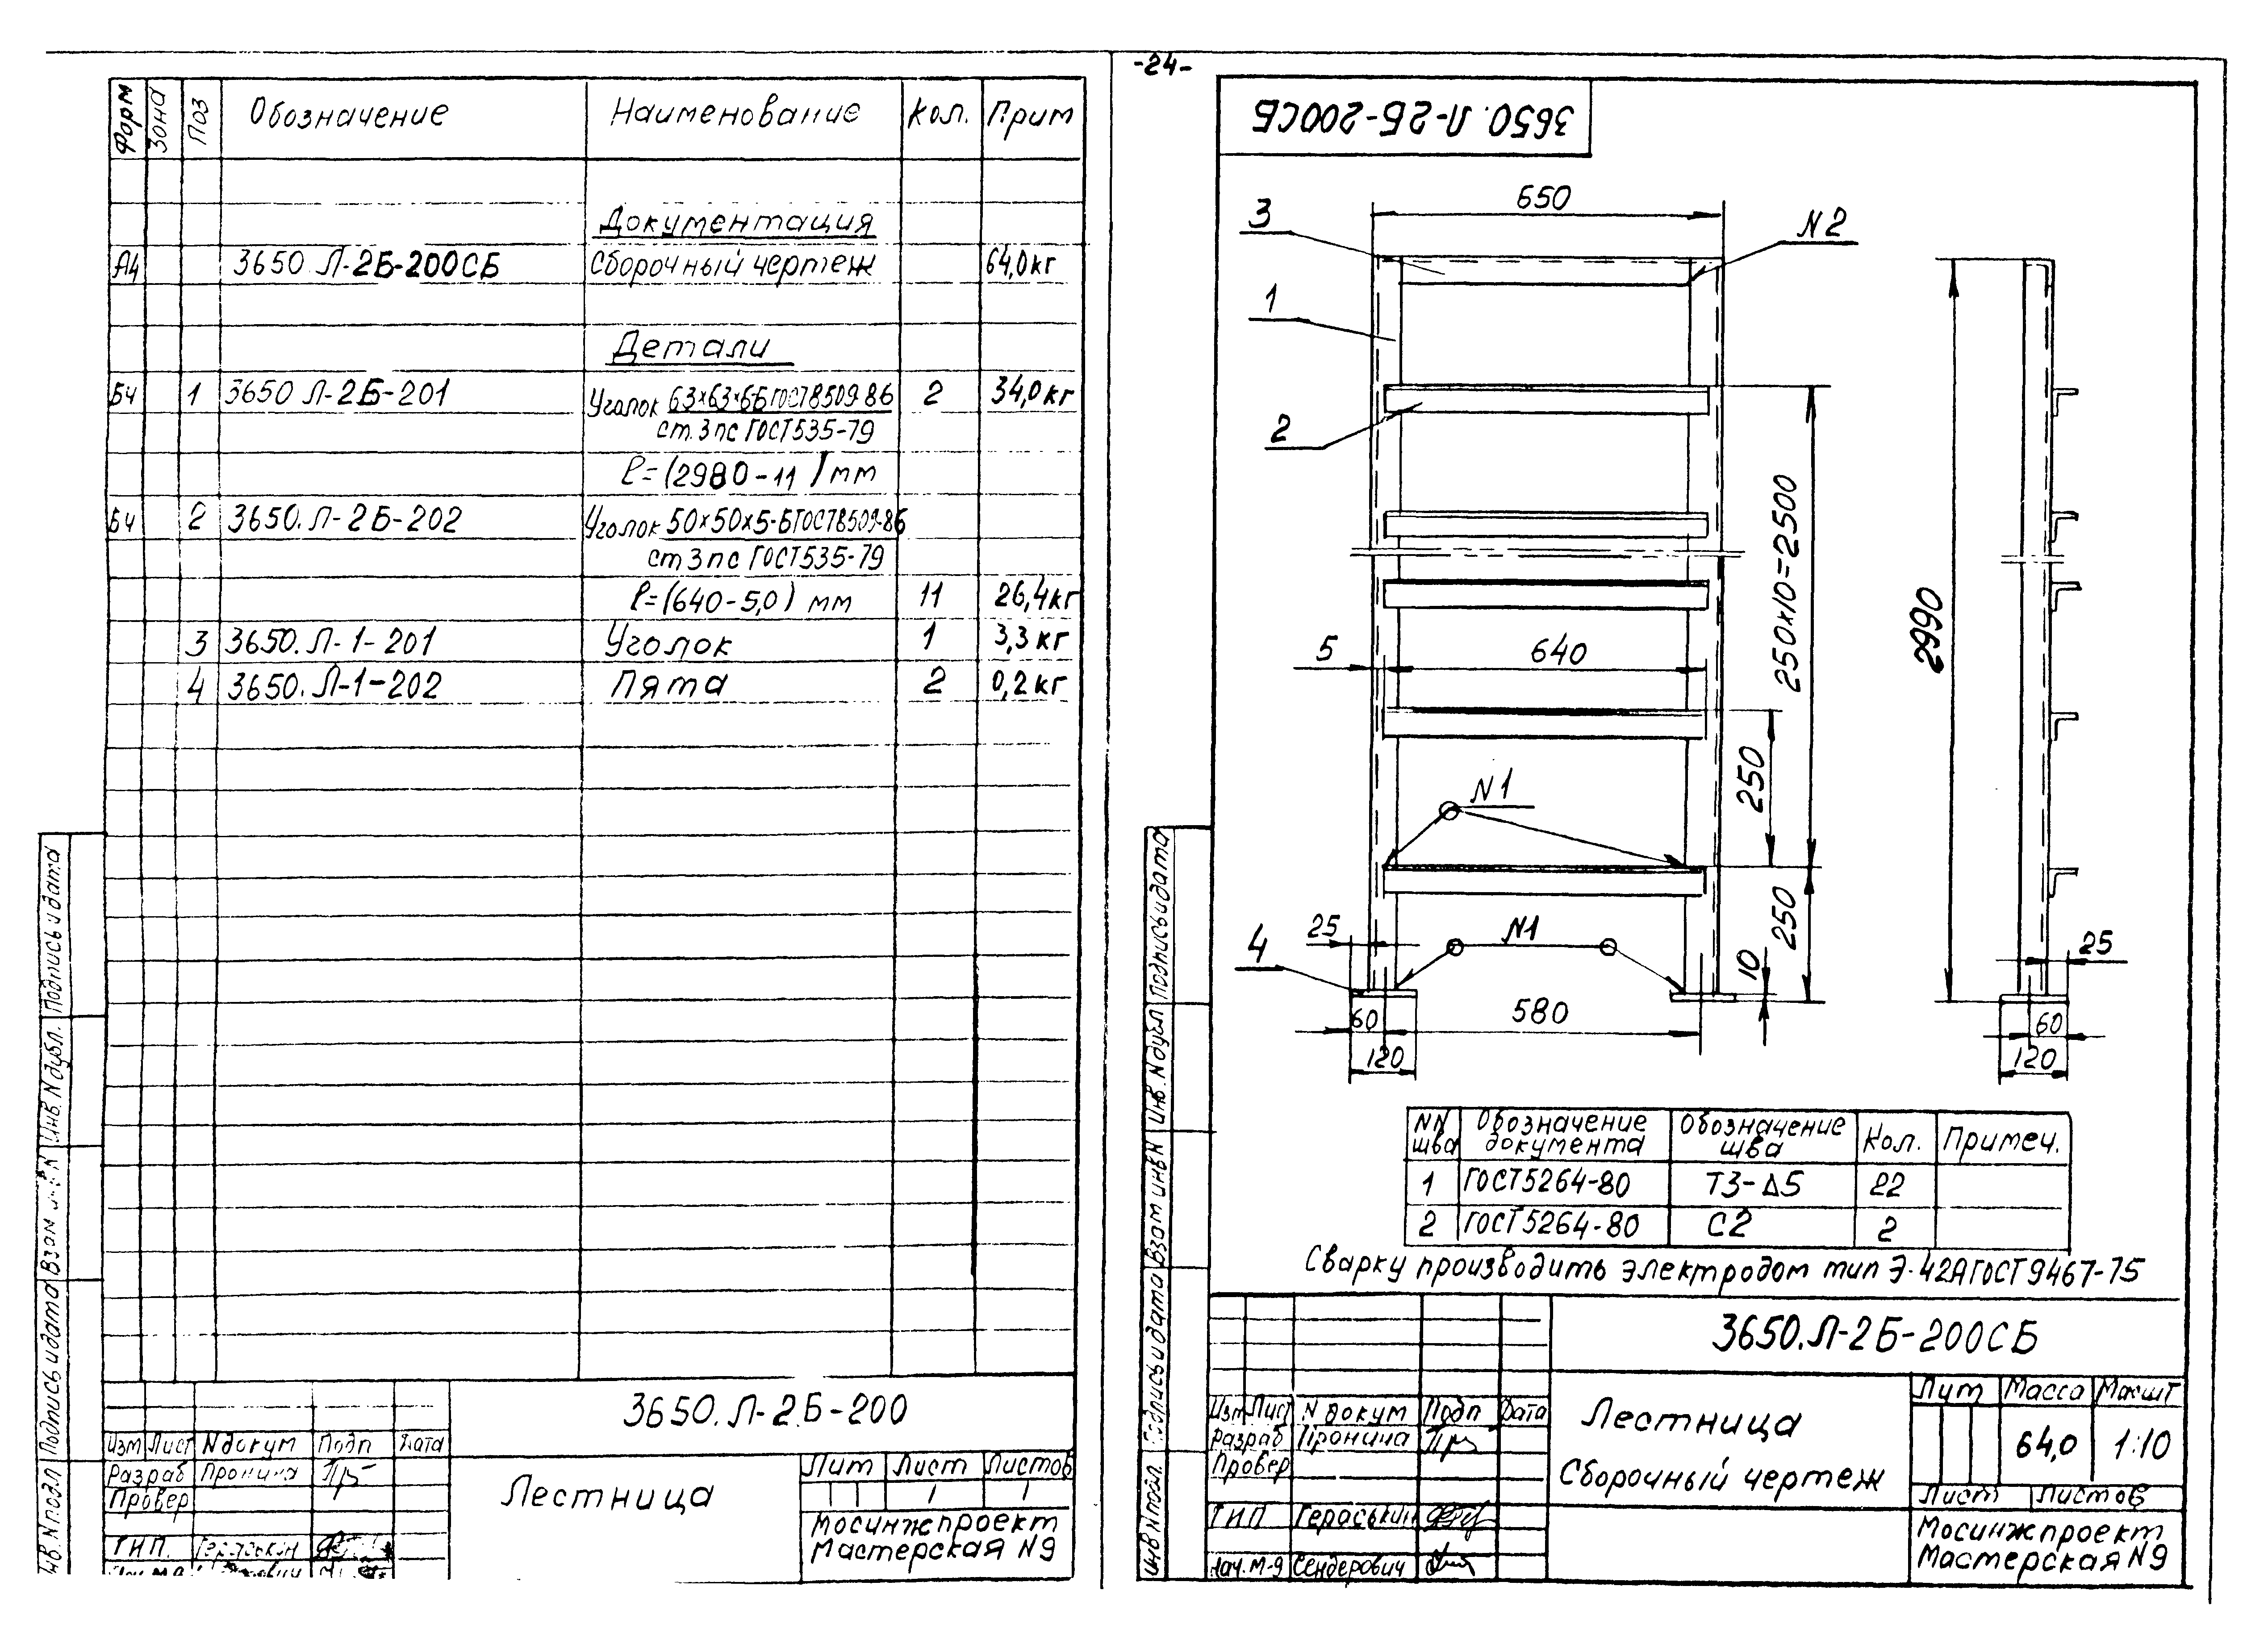 -24-
Форм
Зона
Поз
Обозначение
Наименование
Кол.
Прим
Документация
А4 3650 Л-2Б-200СБ Сборочный чертеж 64,0кг
Детали
БЧ 1 3650 Л-2Б-201 Уголок 63×63×6-Б ГОСТ8509-86 2 34,0кг
ст.3пс ГОСТ535-79
ℓ=(2980-11)мм
БЧ 2 3650.Л-2Б-202 Уголок 50×50×5-Б ГОСТ8509-86
ст3пс ГОСТ535-79
ℓ=(640-5,0) мм 11 26,4кг
3 3650.Л-1-201 Уголок 1 3,3кг
4 3650.Л-1-202 Пята 2 0,2кг
Подпись и дата
Инв.N дубл.
Взам инв N
Подпись и дата
Инв.N подл
3650.Л-2Б-200
Изм Лист N докум Подп Дата
Разраб Пронина
Провер
ГИП. Гераськин
Лестница
Лит Лист Листов
1 1
Мосинжпроект
Мастерская N9
3650.Л-2Б-200СБ
650
3
N2
1
2
5
640
250×10=2500
2990
250
N1
250
25
N1
4
10
25
60
580
60
120
120
NN шва
Обозначение документа
Обозначение шва
Кол.
Примеч.
1 ГОСТ5264-80 Т3-Δ5 22
2 ГОСТ5264-80 С2 2
Сварку производить электродом тип Э-42А ГОСТ9467-75
Подпись и дата
Инв.N дубл
Взам инв N
Подпись и дата
Инв N подл.
3650.Л-2Б-200СБ
Изм Лист N докум Подп Дата
Разраб Пронина
Провер
ГИП Гераськин
Нач.М-9 Сендерович
Лестница
Сборочный чертеж
Лит Масса Масшт
64,0 1:10
Лист Листов
Мосинжпроект
Мастерская N9